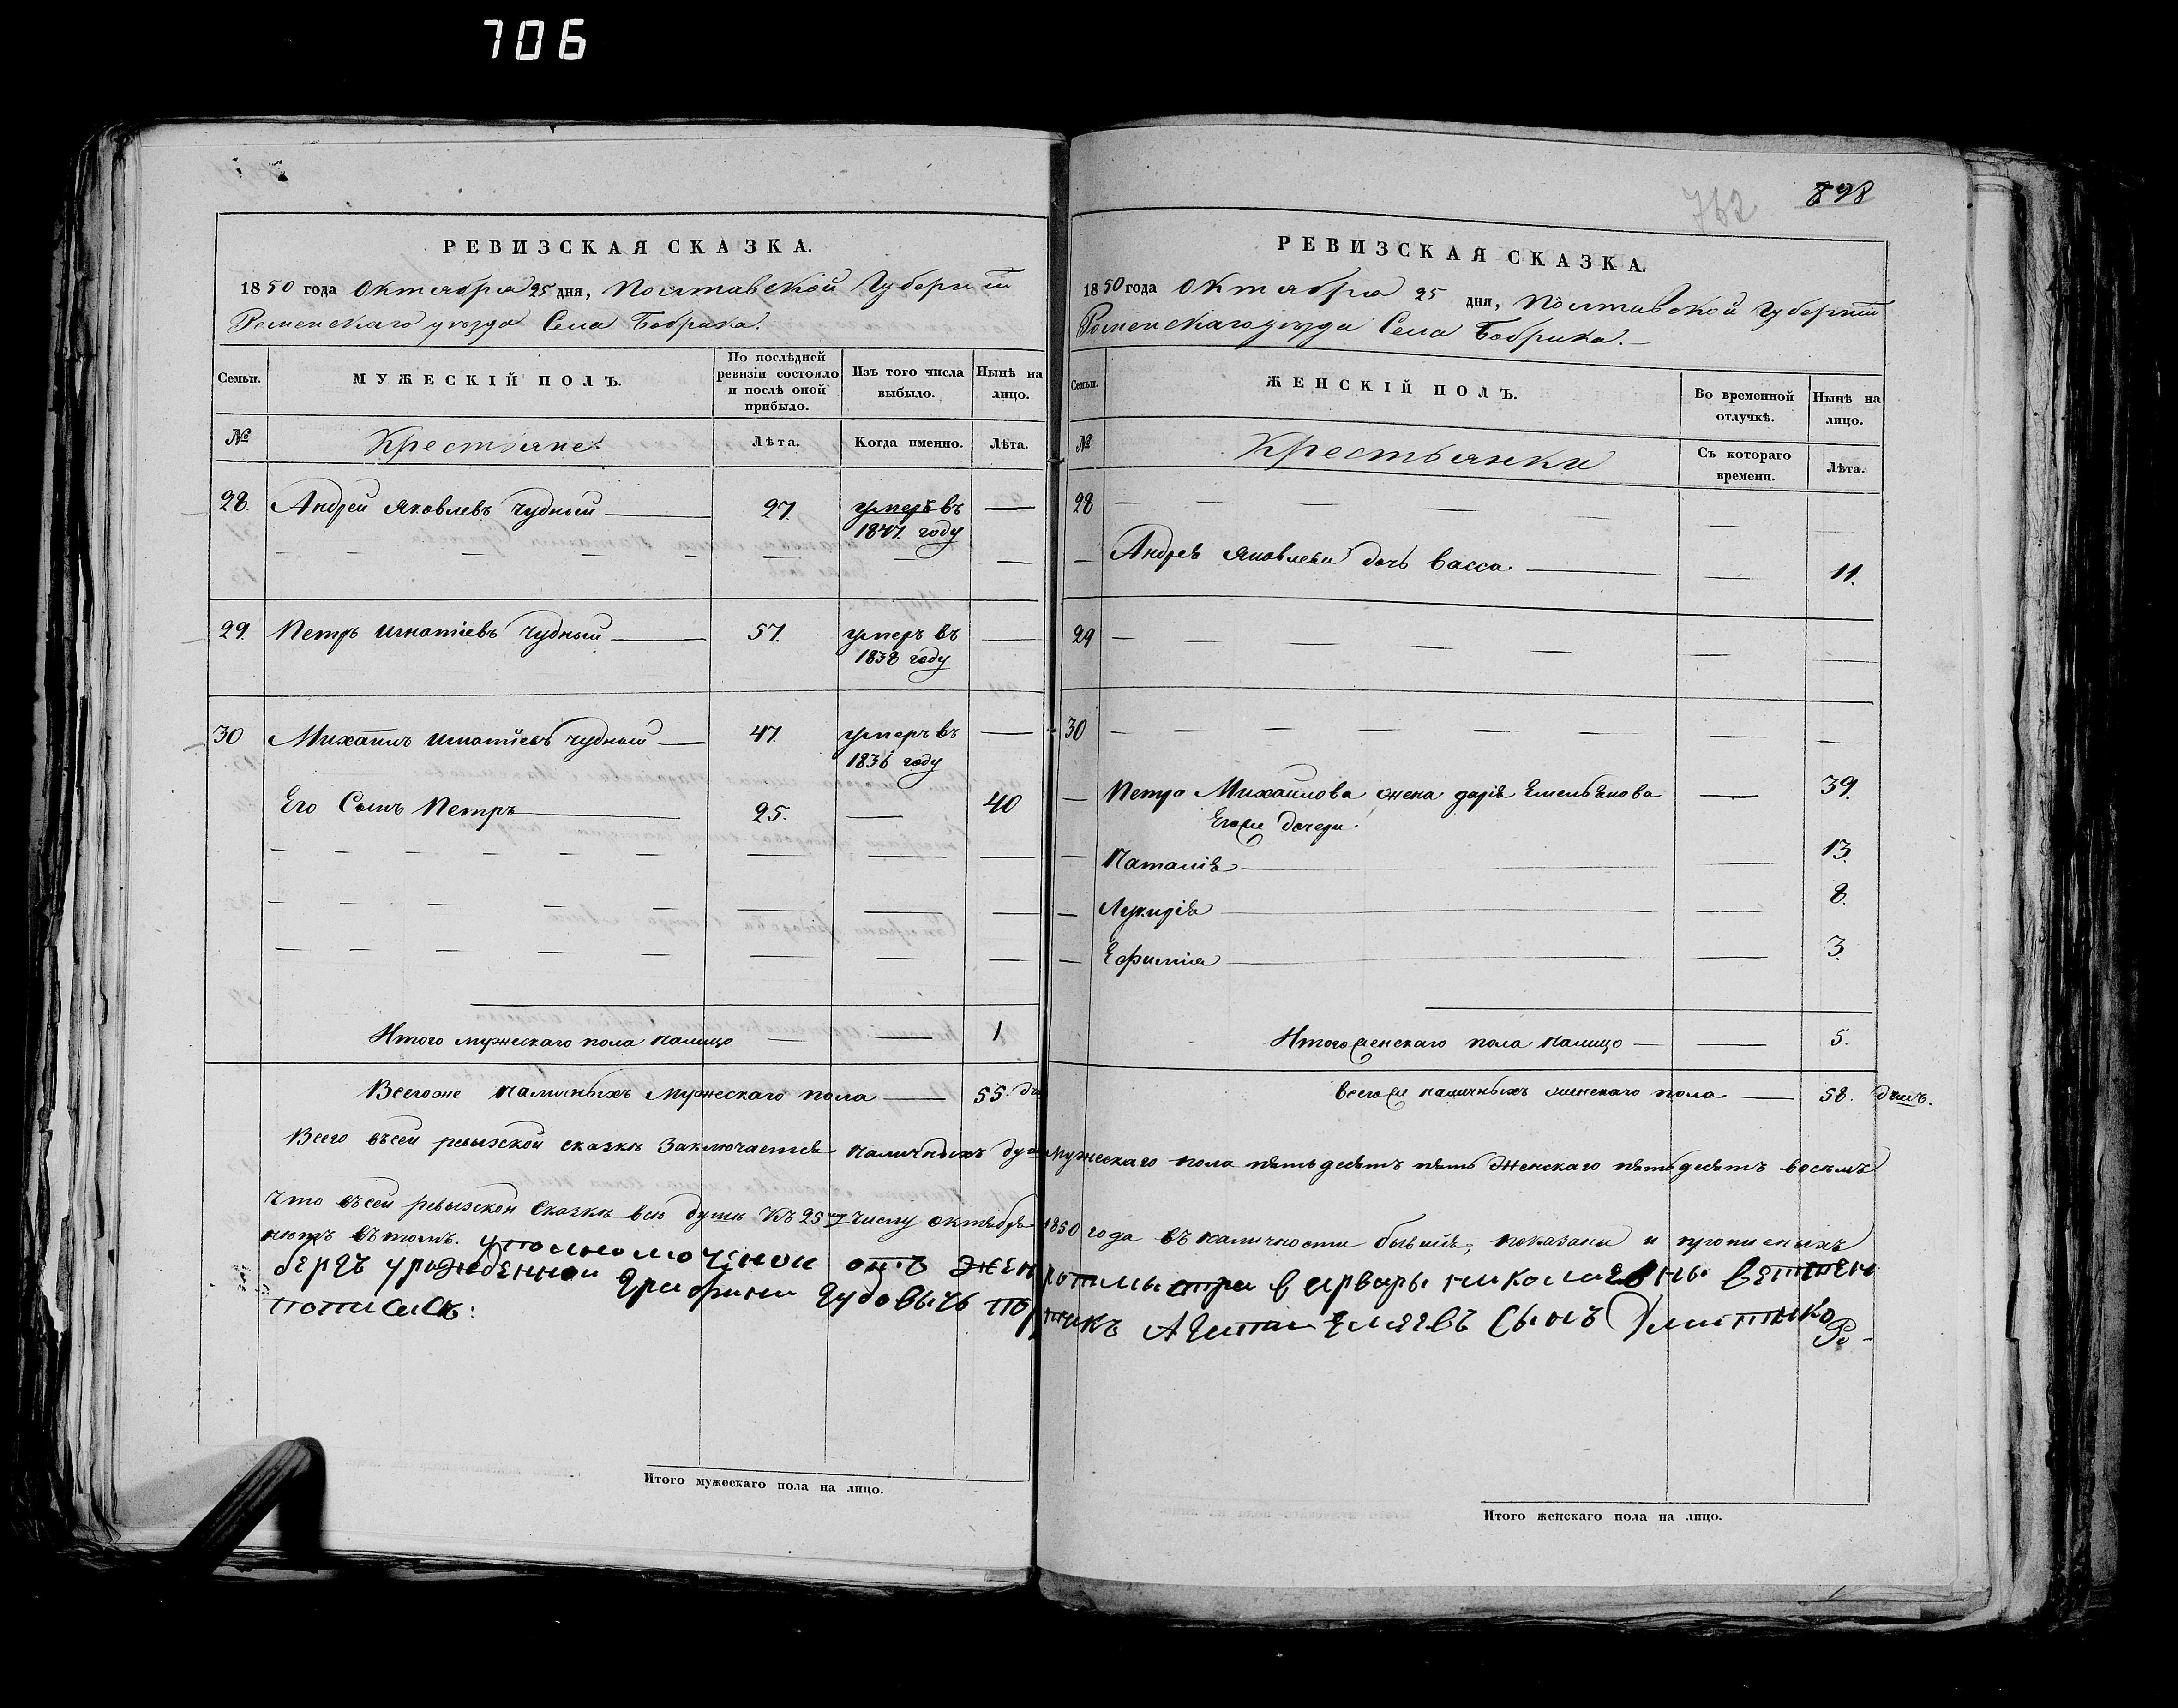 706
РЕВИЗСКАЯ СКАЗКА.
1850 года Октября 25 дня, Полтавской Губерніи
Роменскаго уѣзда Села Бобрика.
Семьи.
МУЖЕСКІЙ ПОЛЪ.
По послѣдней ревизіи состояло и послѣ оной прибыло.
Изъ того числа выбыло.
Нынѣ на лицо.
№
Крестьяне.
Лѣта.
Когда именно.
Лѣта.
28. Андрей Яковлевъ Чудный — 27. умеръ въ —
1847 году
29. Петръ Игнатіевъ Чудный — 57. умеръ въ —
1838 году
30 Михаилъ Игнатіевъ Чудный — 47. умеръ въ —
1836 году
Его Сынъ Петръ — 25. — 40
Итого мужескаго пола налицо — — 1
Всегоже наличныхъ мужескаго пола — 55. ду
762
898
РЕВИЗСКАЯ СКАЗКА.
1850 года Октября 25 дня, Полтавской Губерніи
Роменскаго уѣзда Села Бобрика. —
Семьи.
ЖЕНСКІЙ ПОЛЪ.
Во временной отлучкѣ.
Нынѣ на лицо.
№
Крестьянки
Съ котораго времени.
Лѣта.
28
— Андрея Яковлева дочь Васса. — — 11.
29
30
— Петра Михайлова жена Дарія Емельянова — 39.
Егоже дочери.
— Наталія — — 13.
— Лукидія — — 8.
— Ефимія — — 3.
Итого женскаго пола налицо — — 5.
Всегоже наличныхъ женскаго пола — 58. душъ.
Всего въсей ревизской сказкѣ заключается наличныхъ душ мужескаго пола пятьдесятъ пять женскаго пятьдесятъ восѣмъ
Что въсей ревизской сказкѣ всѣ души къ 25му числу октября 1850 года въ наличности бывшія, показаны и прописныхъ
нѣтъ въ томъ. уполномочіной отъ жен ротмыстра варвары николаевны
берхъ урожденной Графини Гудовычь
Итого мужескаго пола на лицо.
Итого женскаго пола на лицо.